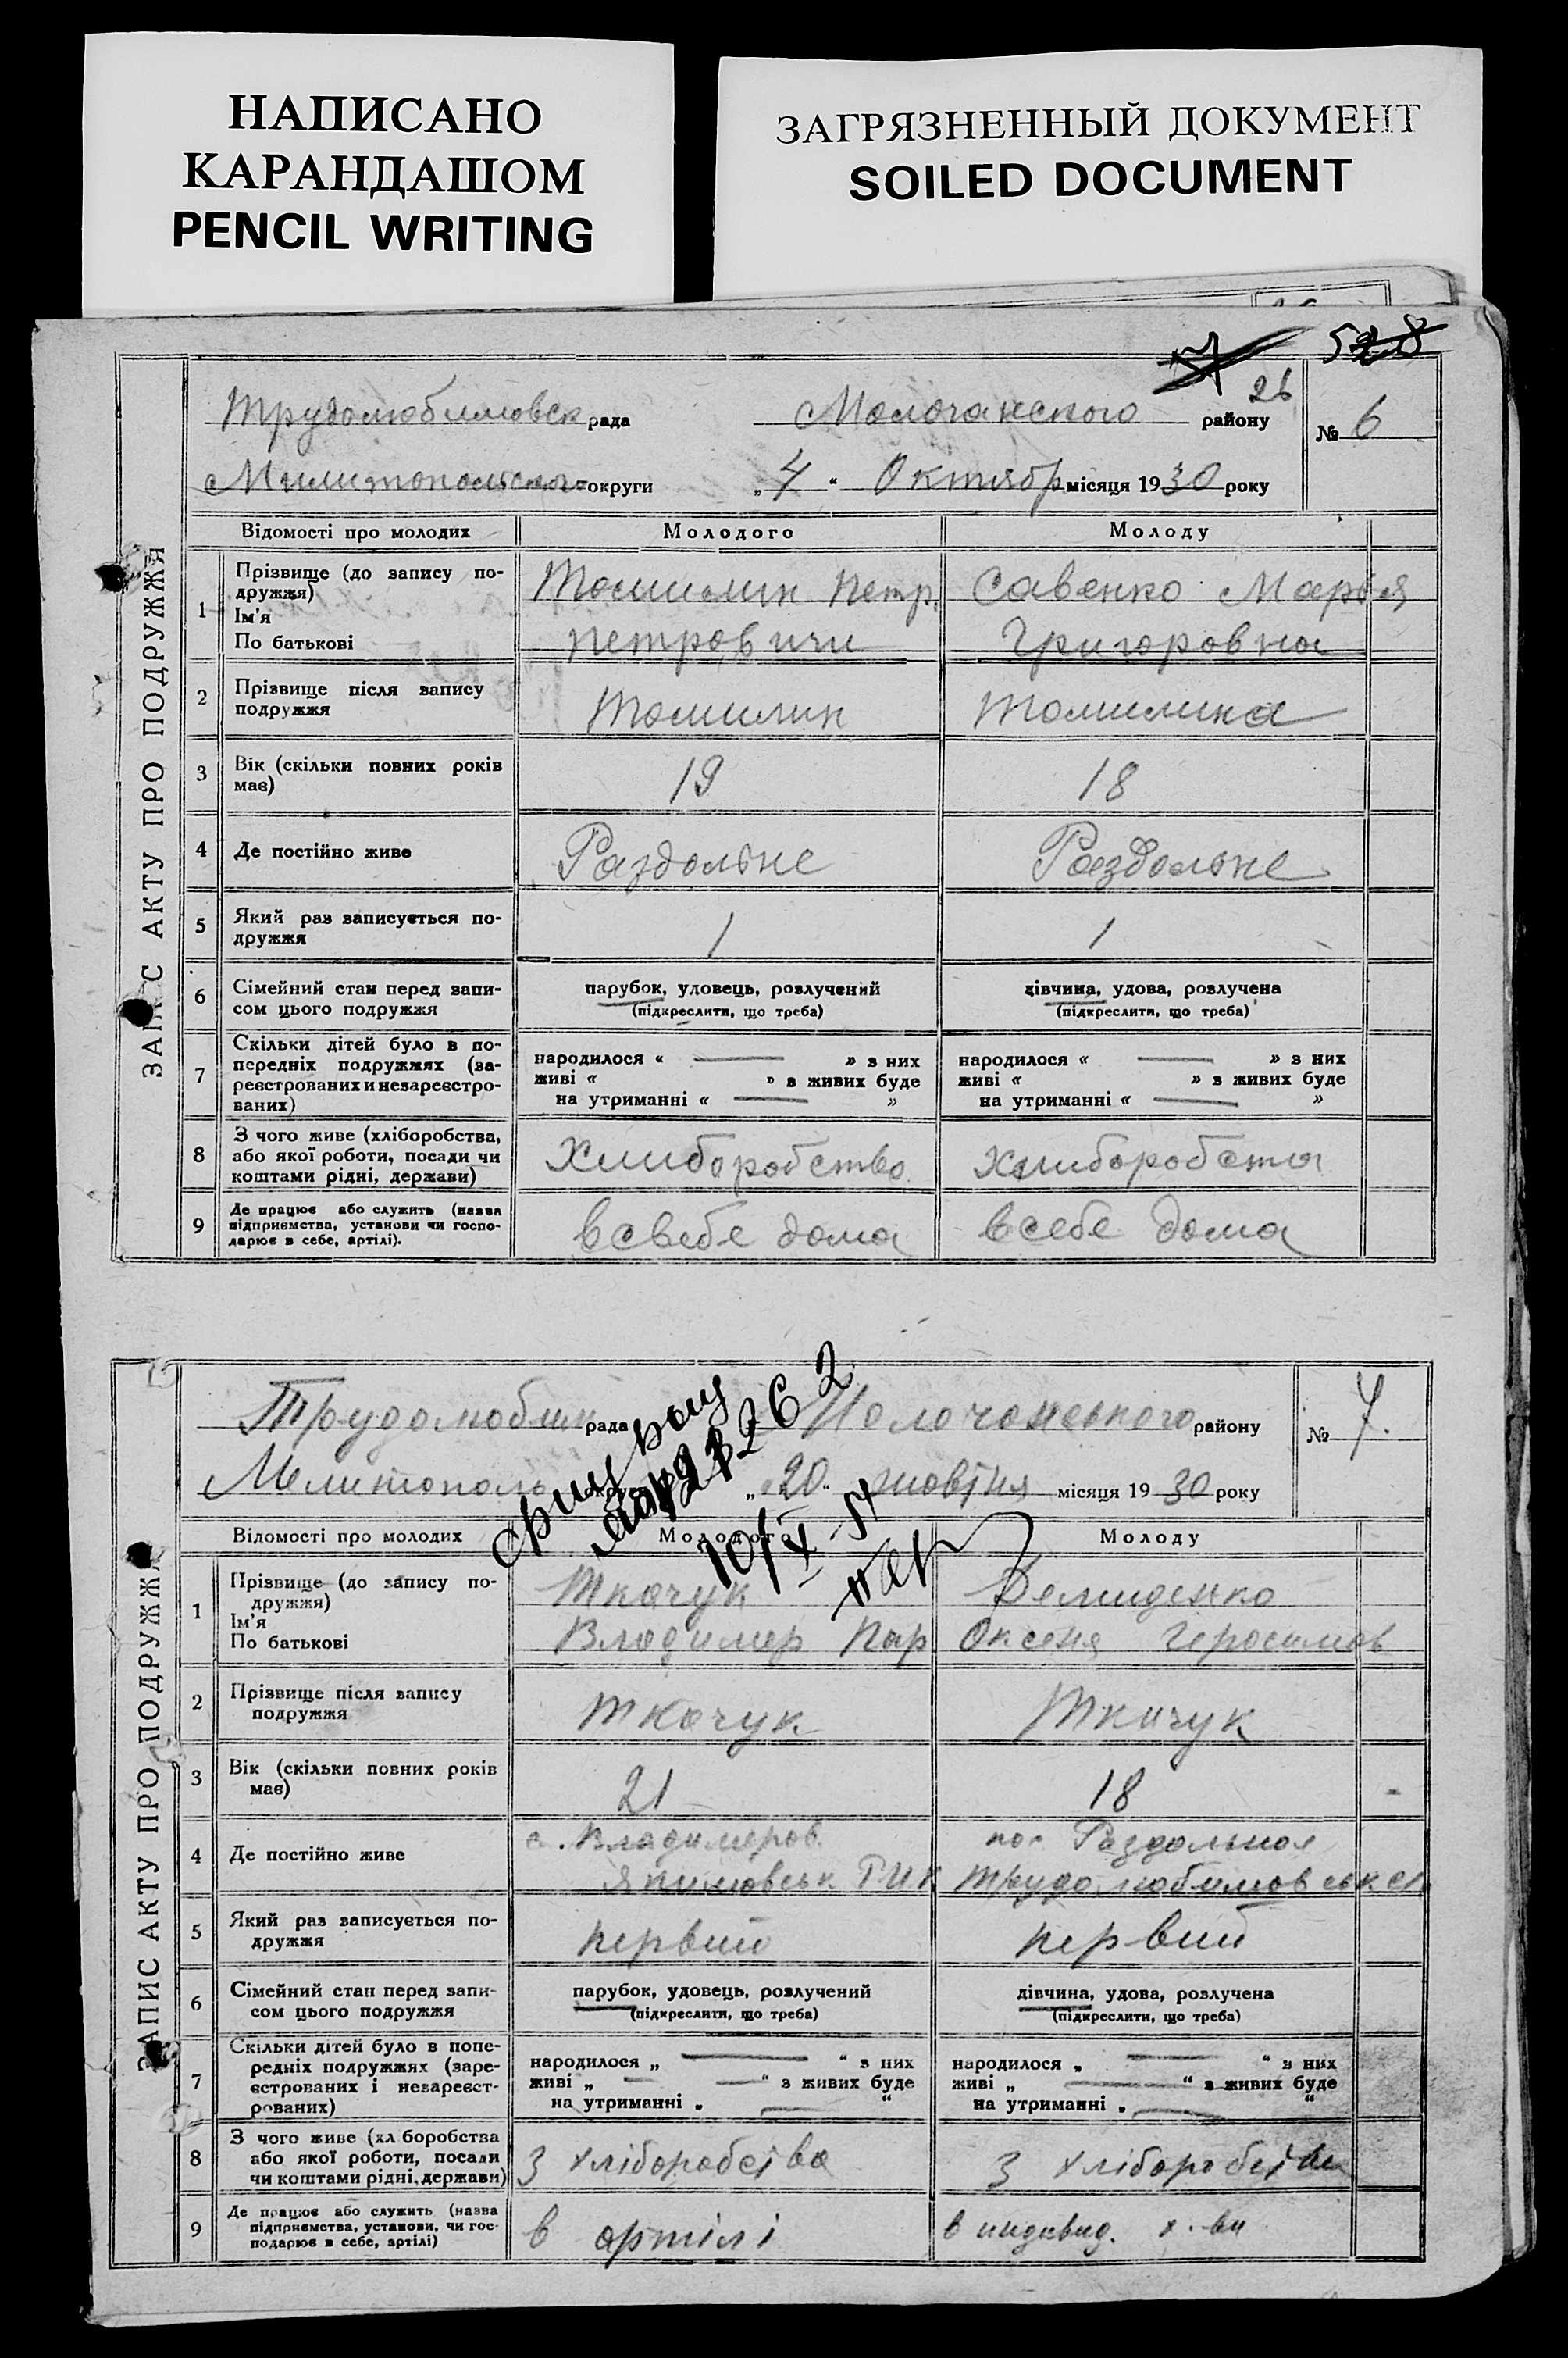 НАПИСАНО
КАРАНДАШОМ
PENCIL WRITING
ЗАГРЯЗНЕННЫЙ ДОКУМЕНТ
SOILED DOCUMENT
26
ЗАПИС АКТУ ПРО ПОДРУЖЖЯ
Трудолюбимовск рада Молочанского району № 6
Милитопольского округи „4“ Октябр місяця 1930 року
Відомості про молодих Молодого Молоду
1 Прізвище (до запису по-
дружжя)
Ім'я
По батькові
Томилин Петр.
Петрович
Савенко Марія
Григоровна
2 Прізвище після запису
подружжя
Томилин
Томилина
3 Вік (скільки повних років
має)
19
18
4 Де постійно живе
Раздольне
Раздольне
5 Який раз записується по-
дружжя
1
1
6 Сімейний стан перед запи-
сом цього подружжя
парубок, удовець, розлучений
(підкреслити, що треба)
дівчина, удова, розлучена
(підкреслити, що треба)
7 Скільки дітей було в по-
передніх подружжях (за-
реєстрованих и незареєстро-
ваних)
народилося « » з них
живі « » з живих буде
на утриманні « »
народилося « » з них
живі « » з живих буде
на утриманні « »
8 З чого живе (хліборобства,
або якої роботи, посади чи
коштами рідні, держави)
Хлиборобство
Хлиборобства
9 Де працює або служить (назва
підприємства, установи чи госпо-
дарює в себе, артілі).
в свебе дома
в себе дома
ЗАПИС АКТУ ПРО ПОДРУЖЖЯ
Трудолюбим рада Молочанського району № 7.
Мелитополь округи „20“ жовтня місяця 1930 року
Відомості про молодих Молодого Молоду
1 Прізвище (до запису по-
дружжя)
Ім'я
По батькові
Ткачук
Владимер Пар
Демиденко
Оксеня Геросимов
2 Прізвище після запису
подружжя
Ткачук
Ткачук
3 Вік (скільки повних років
має)
21
18
4 Де постійно живе
с. Владимеров
Якимовськ РИК
пос Раздольноя
Трудолюбимовськ
5 Який раз записується по-
дружжя
первий
первий
6 Сімейний стан перед запи-
сом цього подружжя
парубок, удовець, розлучений
(підкреслити, що треба)
дівчина, удова, розлучена
(підкреслити, що треба)
7 Скільки дітей було в попе-
редніх подружжях (заре-
єстрованих і незареєст-
рованих)
народилося „ “ з них
живі „ “ з живих буде
на утриманні „ “
народилося „ “ з них
живі „ “ з живих буде
на утриманні „ “
8 З чого живе (хл боробства
або якої роботи, посади
чи коштами рідні, держави)
З хліборобства
З хліборобства
9 Де працює або служить (назва
підприємства, установи, чи гос-
подарює в себе, артілі)
в артілі
в индивид. х-ви